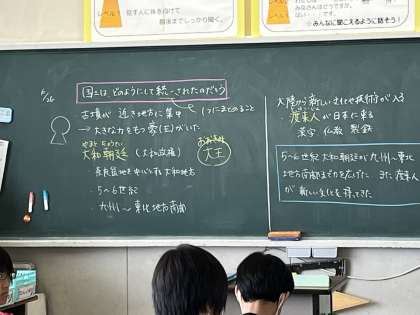 レベル1
話す人に体を向けて
最後までしっかり聞く。
みなさんはどうですか。
☆みんなに聞こえるように話そう!
国土は、どのようにして統一されたのだろう
古墳が 近き地方に集中
(1つにまとめること
→大きな力をもつ豪(王)がいた
やまとちょうてい
大和朝廷(大和政権)
おおきみ
大王
・奈良盆地を中心とする大和地方
・5〜6世紀
・九州〜東北地方南部
大陸から新しい文化や技術が入る
・渡来人が日本に来る
漢字 仏教 製鉄
5〜6世紀 大和朝廷が九州〜東北
地方南部までを広げた。また渡来人
が新しい文化を